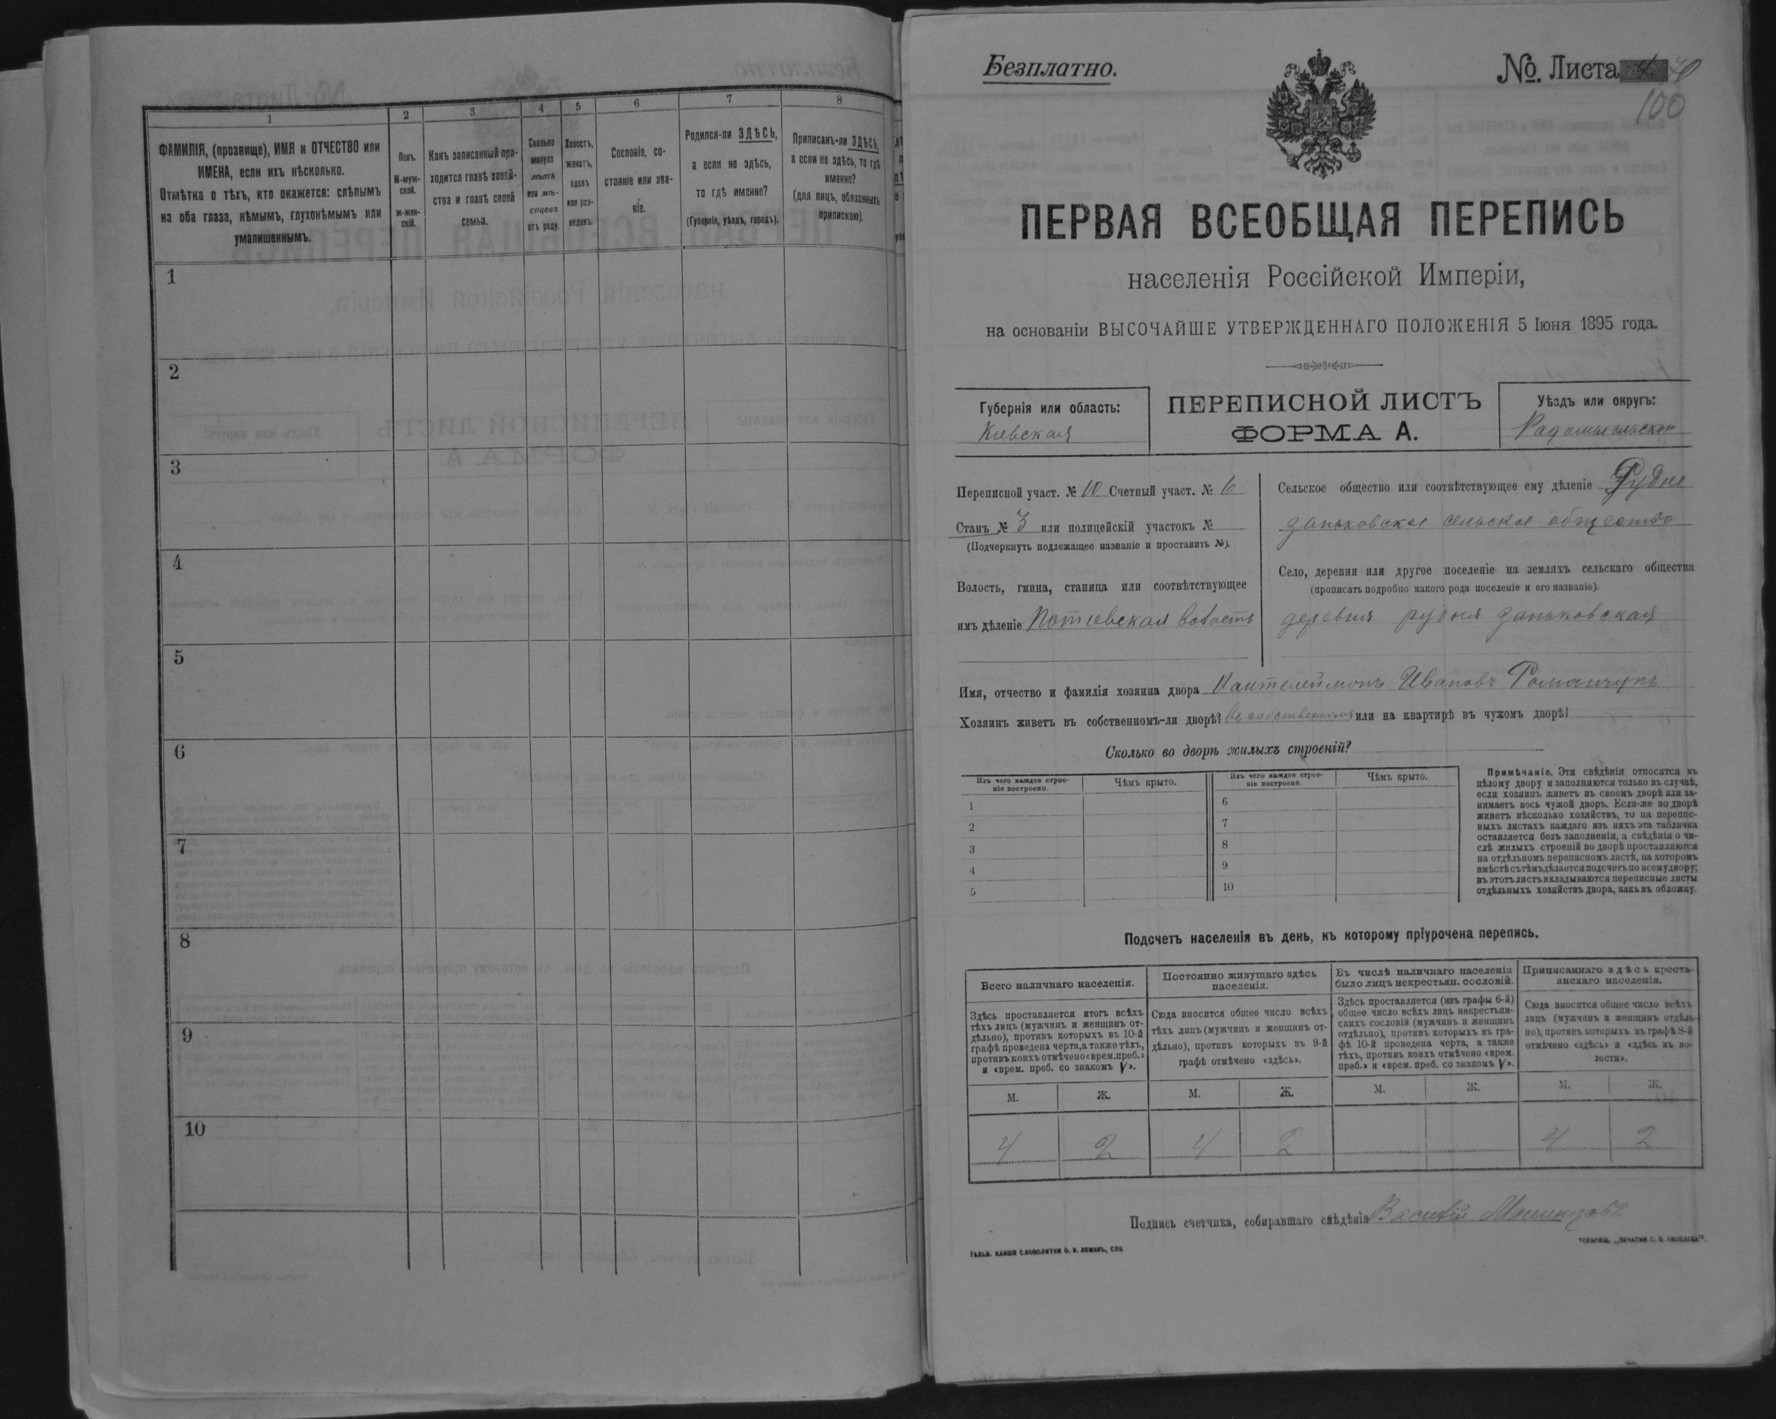 1
2
3
4
5
6
7
8
ФАМИЛІЯ, (прозвище), ИМЯ и ОТЧЕСТВО или
ИМЕНА, если ихъ нѣсколько.
Отмѣтка о тѣхъ, кто окажется: слѣпымъ
на оба глаза, нѣмымъ, глухонѣмымъ или
умалишеннымъ.
Полъ.
М-муж-
ской.
ж-жен-
скій.
Какъ записанный при-
ходится главѣ хозяй-
ства и главѣ своей
семьи.
Сколько
минуло
лѣтъ
или мѣ-
сяцевъ
отъ роду.
Холостъ,
женатъ,
вдовъ
или раз-
веденъ.
Сословіе, со-
стояніе или зва-
ніе.
Родился-ли ЗДѢСЬ,
а если не здѣсь,
то гдѣ именно?
(Губернія, уѣздъ, городъ).
Приписанъ-ли ЗДѢСЬ,
а если не здѣсь, то гдѣ
именно?
(для лицъ, обязанныхъ
припискою).
1
2
3
4
5
6
7
8
9
10
Безплатно.
№. Листа
100
ПЕРВАЯ ВСЕОБЩАЯ ПЕРЕПИСЬ
населенія Россійской Имперіи,
на основаніи ВЫСОЧАЙШЕ УТВЕРЖДЕННАГО ПОЛОЖЕНІЯ 5 Іюня 1895 года.
Губернія или область:
Кіевская
ПЕРЕПИСНОЙ ЛИСТЪ
ФОРМА А.
Уѣздъ или округъ:
Переписной участ. № 10 Счетный участ. № 6
Станъ № 3 или полицейскій участокъ №
(Подчеркнуть подлежащее названіе и проставить №).
Волость, гмина, станица или соотвѣтствующее
имъ дѣленіе Потіевская волость
Сельское общество или соотвѣтствующее ему дѣленіе Рудне
даньковское сельское общество
Село, деревня или другое поселеніе на земляхъ сельскаго общества
(прописать подробно какого рода поселеніе и его названіе).
деревня рудня даньковская
Имя, отчество и фамилія хозяина двора Пантелеймонъ Ивановъ Романчукъ
Хозяинъ живетъ въ собственномъ-ли дворѣ? или на квартирѣ въ чужомъ дворѣ?
Сколько во дворѣ жилыхъ строеній?
Изъ чего каждое строе-
ніе построено.
Чѣмъ крыто.
Изъ чего каждое строе-
ніе построено.
Чѣмъ крыто.
1
2
3
4
5
6
7
8
9
10
Примѣчаніе. Эти свѣдѣнія относятся къ
цѣлому двору и заполняются только въ случаѣ,
если хозяинъ живетъ въ своемъ дворѣ или за-
нимаетъ весь чужой дворъ. Если-же во дворѣ
живетъ нѣсколько хозяйствъ, то на перепис-
ныхъ листахъ каждаго изъ нихъ эта табличка
оставляется безъ заполненія, а свѣдѣнія о чи-
слѣ жилыхъ строеній во дворѣ проставляются
на отдѣльномъ переписномъ листѣ, на которомъ
вмѣстѣ съ тѣмъ дѣлается подсчетъ по всему двору;
въ этотъ листъ вкладываются переписные листы
отдѣльныхъ хозяйствъ двора, какъ въ обложку.
Подсчетъ населенія въ день, къ которому пріурочена перепись.
Всего наличнаго населенія.
Постоянно живущаго здѣсь
населенія.
Въ числѣ наличнаго населенія
было лицъ некрестьян. сословій.
Приписаннаго здѣсь кресть-
янскаго населенія.
Здѣсь проставляется итогъ всѣхъ
тѣхъ лицъ (мужчинъ и женщинъ от-
дѣльно), противъ которыхъ въ 10-й
графѣ проведена черта, а также тѣхъ,
противъ коихъ отмѣчено «врем. преб.»
и «врем. преб. со знакомъ V».
Сюда вносится общее число всѣхъ
тѣхъ лицъ (мужчинъ и женщинъ от-
дѣльно), противъ которыхъ въ 9-й
графѣ отмѣчено «здѣсь».
Здѣсь проставляется (изъ графы 6-й)
общее число всѣхъ лицъ некрестьян-
скихъ сословій (мужчинъ и женщинъ
отдѣльно), противъ которыхъ въ гра-
фѣ 10-й проведена черта, а также
тѣхъ, противъ коихъ отмѣчено «врем.
преб.» и «врем. преб. со знакомъ V».
Сюда вносится общее число всѣхъ
лицъ (мужчинъ и женщинъ отдѣль-
но), противъ которыхъ въ графѣ 8-й
отмѣчено «здѣсь» и «здѣсь въ во-
лости».
М. Ж. М. Ж. М. Ж. М. Ж.
4 2 4 2 4 2
Подпись счетчика, собиравшаго свѣдѣнія Василій